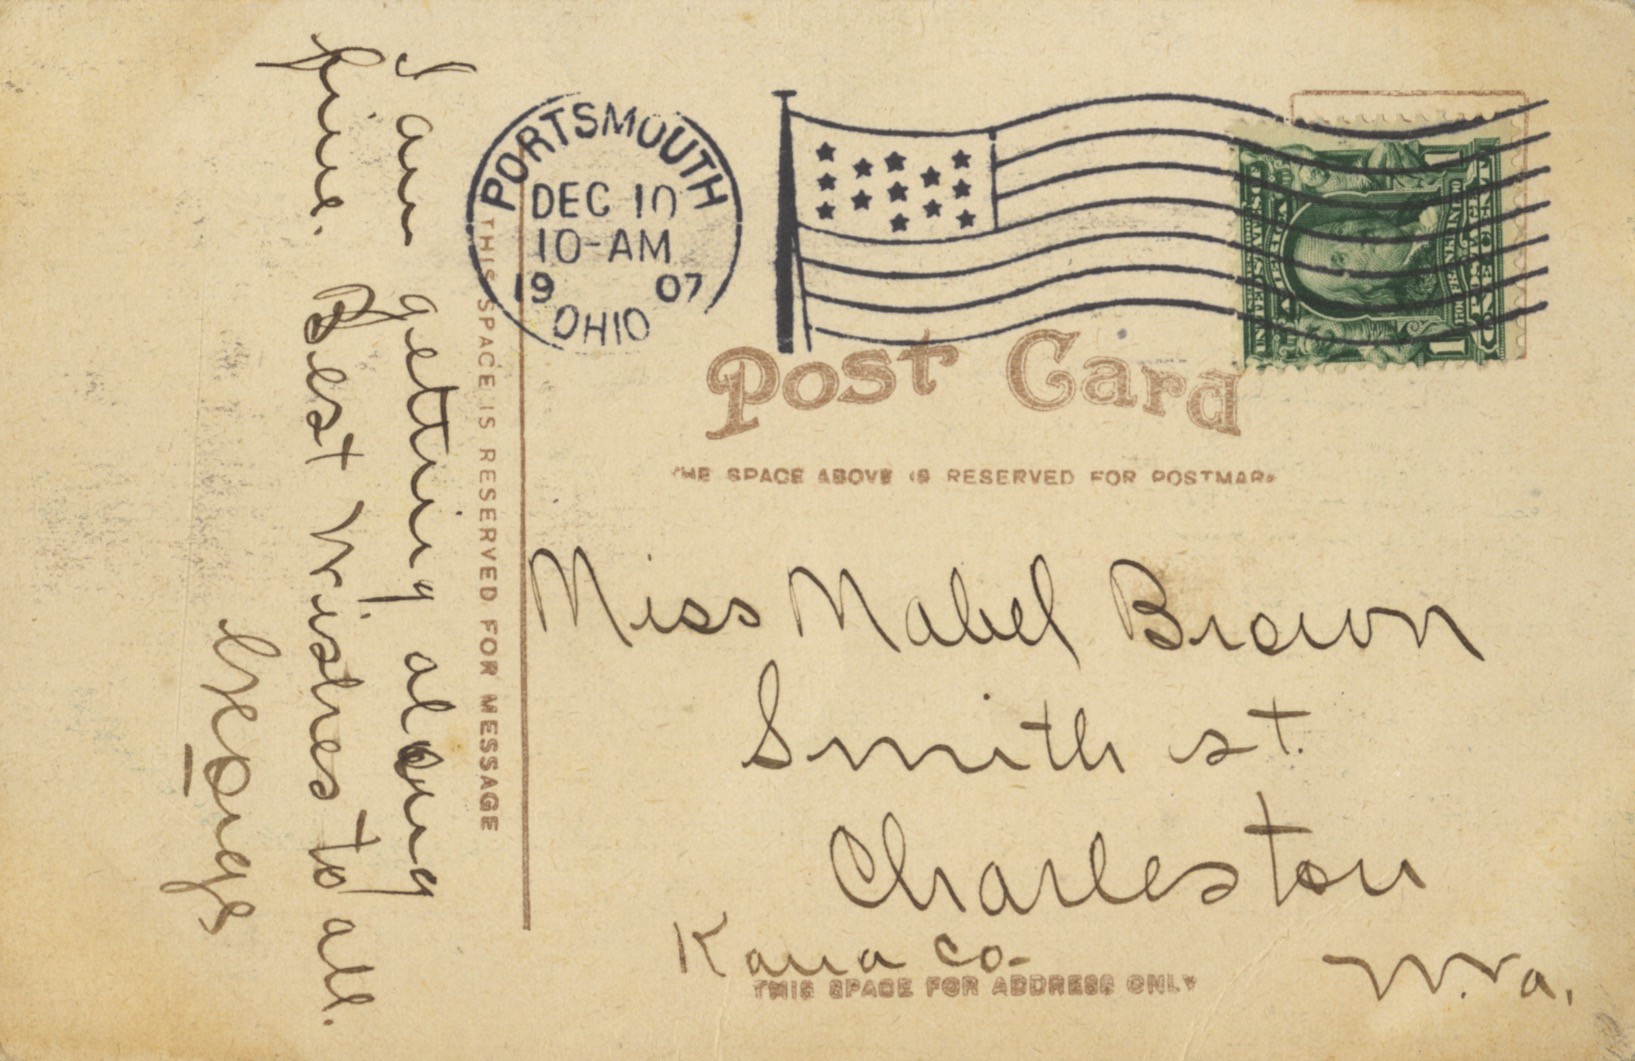 I am getting along
fine. Best Wishes to all.
George
THIS SPACE IS RESERVED FOR MESSAGE
PORTSMOUTH
DEC 10
10-AM
1907
OHIO
Post Card
THE SPACE ABOVE IS RESERVED FOR POSTMARK
Miss Mabel Brown
Smith st.
Charleston
Kana Co-
W.Va.
THIS SPACE FOR ADDRESS ONLY